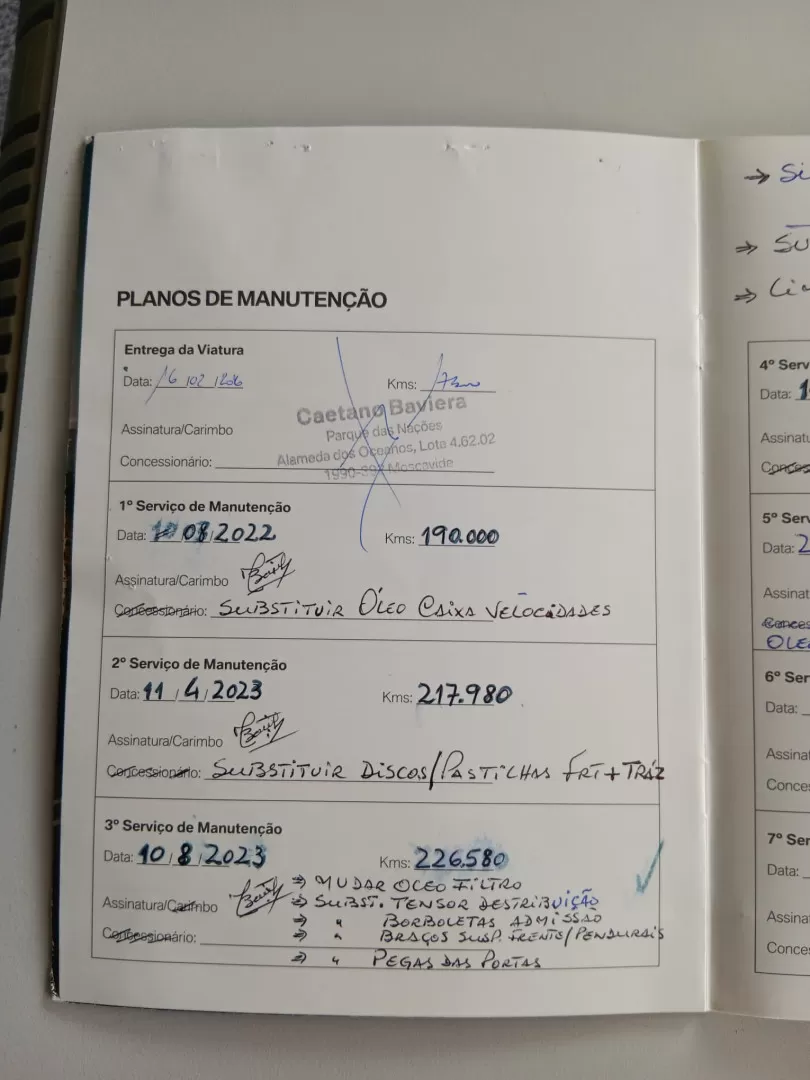 PLANOS DE MANUTENÇÃO
Entrega da Viatura
Data: 16 / 02 /
Kms:
Caetano Baviera
Parque das Nações
Alameda dos Oceanos, Lote 4.62.02
Moscavide
Assinatura/Carimbo
Concessionário:
1º Serviço de Manutenção
Data: 10 / 08 / 2022
Kms: 190.000
Assinatura/Carimbo
Concessionário: SUBSTITUIR ÓLEO CAIXA VELOCIDADES
2º Serviço de Manutenção
Data: 11 / 4 / 2023
Kms: 217.980
Assinatura/Carimbo
Concessionário: SUBSTITUIR DISCOS/PASTILHAS FRT + TRÁZ
3º Serviço de Manutenção
Data: 10 / 8 / 2023
Kms: 226.580
⇒ MUDAR OLEO FILTRO
Assinatura/Carimbo
⇒ SUBST. TENSOR DESTRIBUIÇÃO
⇒ " BORBOLETAS ADMISSÃO
Concessionário:
⇒ " BRAÇOS SUSP. FRENTE/PENDURAIS
⇒ " PEGAS DAS PORTAS
4º Serv
Data:
Assinatu
5º Serv
Data: 2
Assinat
OLE
6º Ser
Data:
Assinat
Conce
7º Ser
Data:
Assinat
Conce